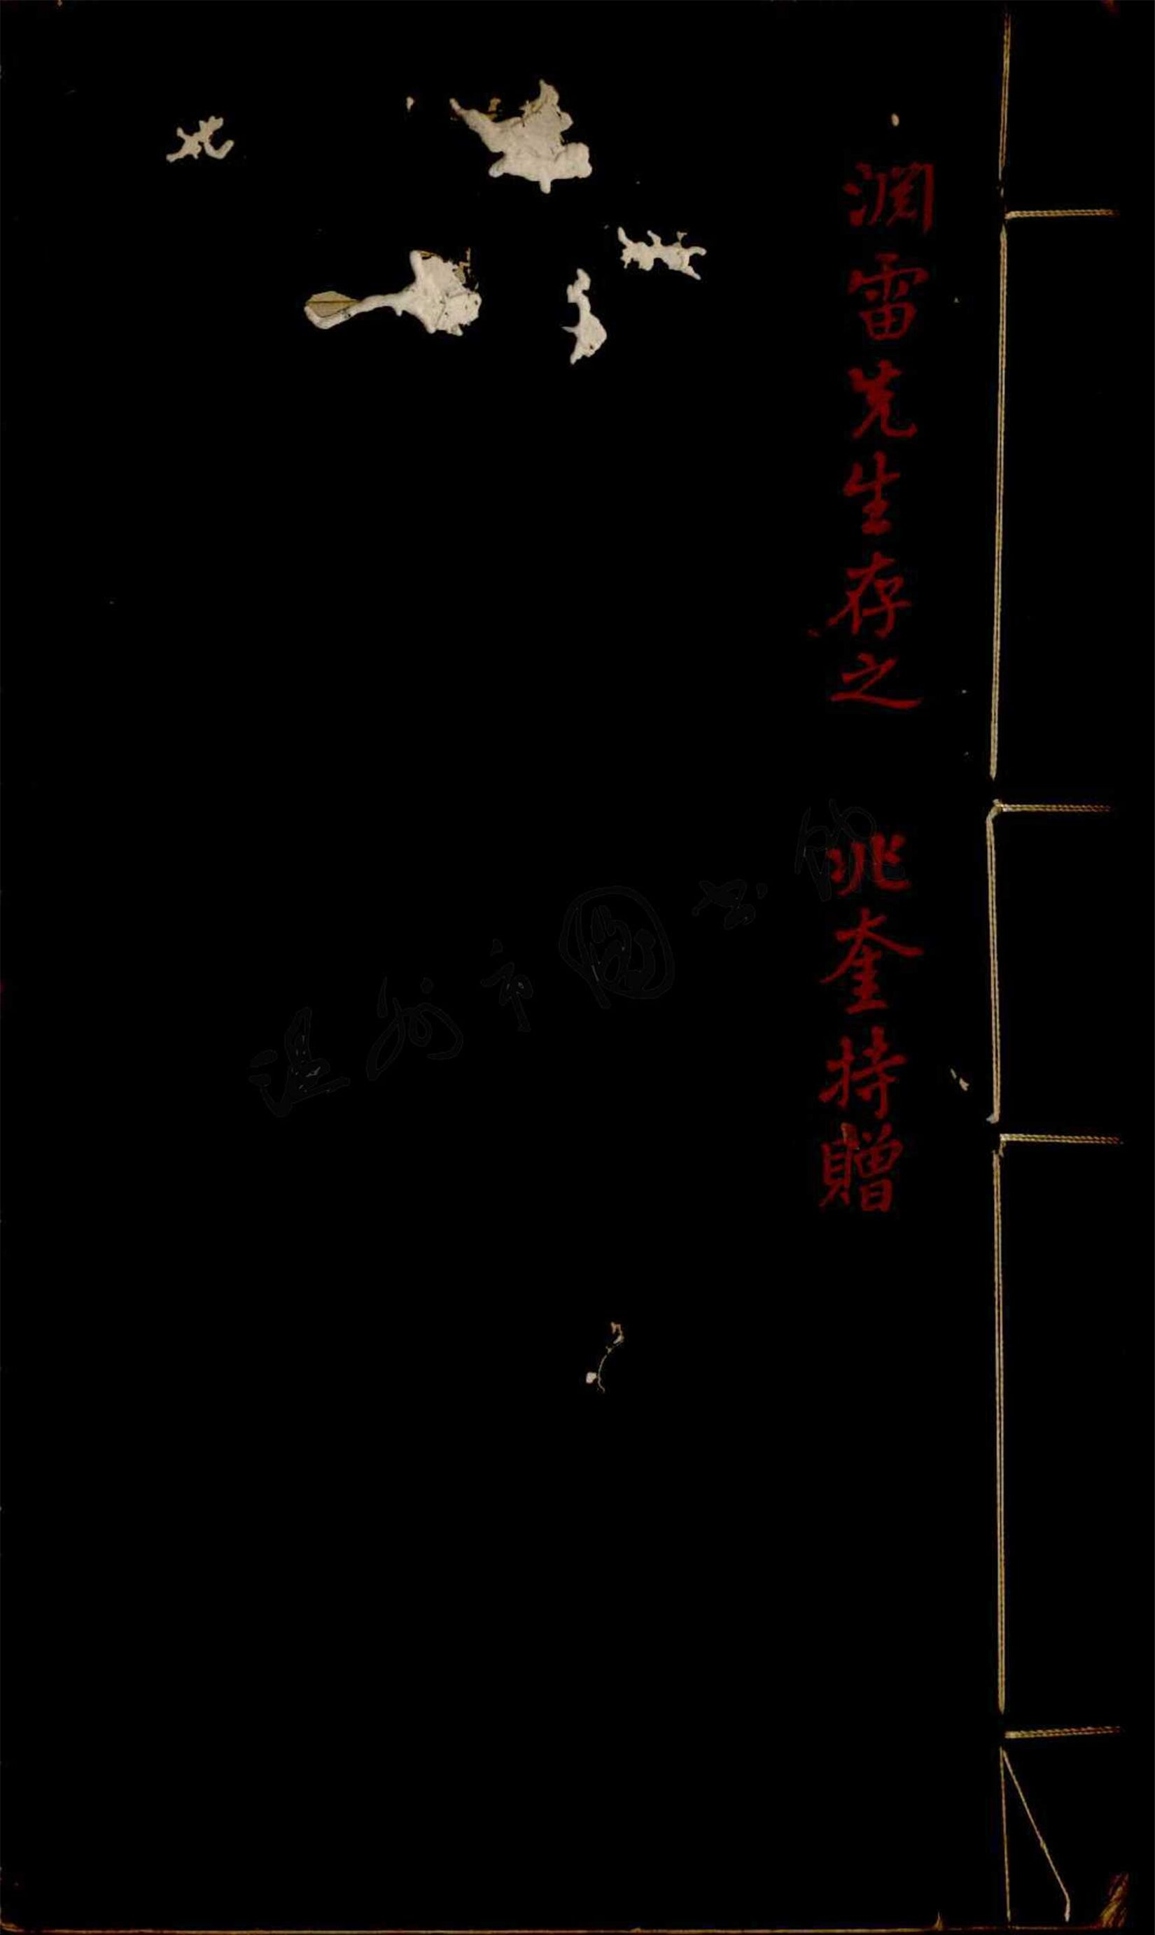 渊雷先生存之 兆奎持贈
温州市圖书馆